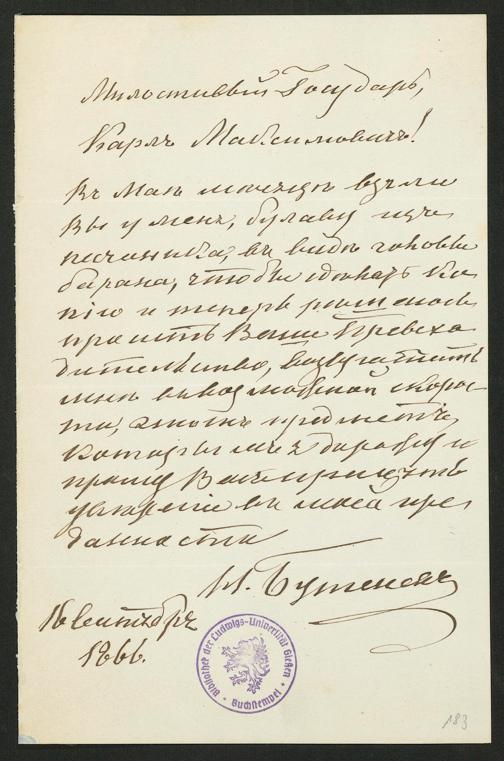 Милостивый Государь,
Карлъ Максимовичъ!
Въ Маѣ мѣсяцѣ взяли
Вы у меня, булаву изъ
песчаника, въ видѣ головы
барана, чтобы сдѣлать ко
пію и теперь рѣшаюсь
просить Ваше Превосхо
дительство, возвратить
мнѣ въ возможной скорос
ти, этотъ предметъ,
которымъ я дорожу и
прошу Васъ принять
увѣреніе въ моей пре
данности
Н. Бутеневъ
16 Сентябрь
1866.
Bibliothek der Ludwigs-Universität Gießen
Buchstempel
183